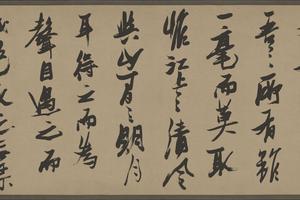 吾之所有雖
一毫而莫取
惟江上之清風
與山間之明月
耳得之而為
聲目遇之而